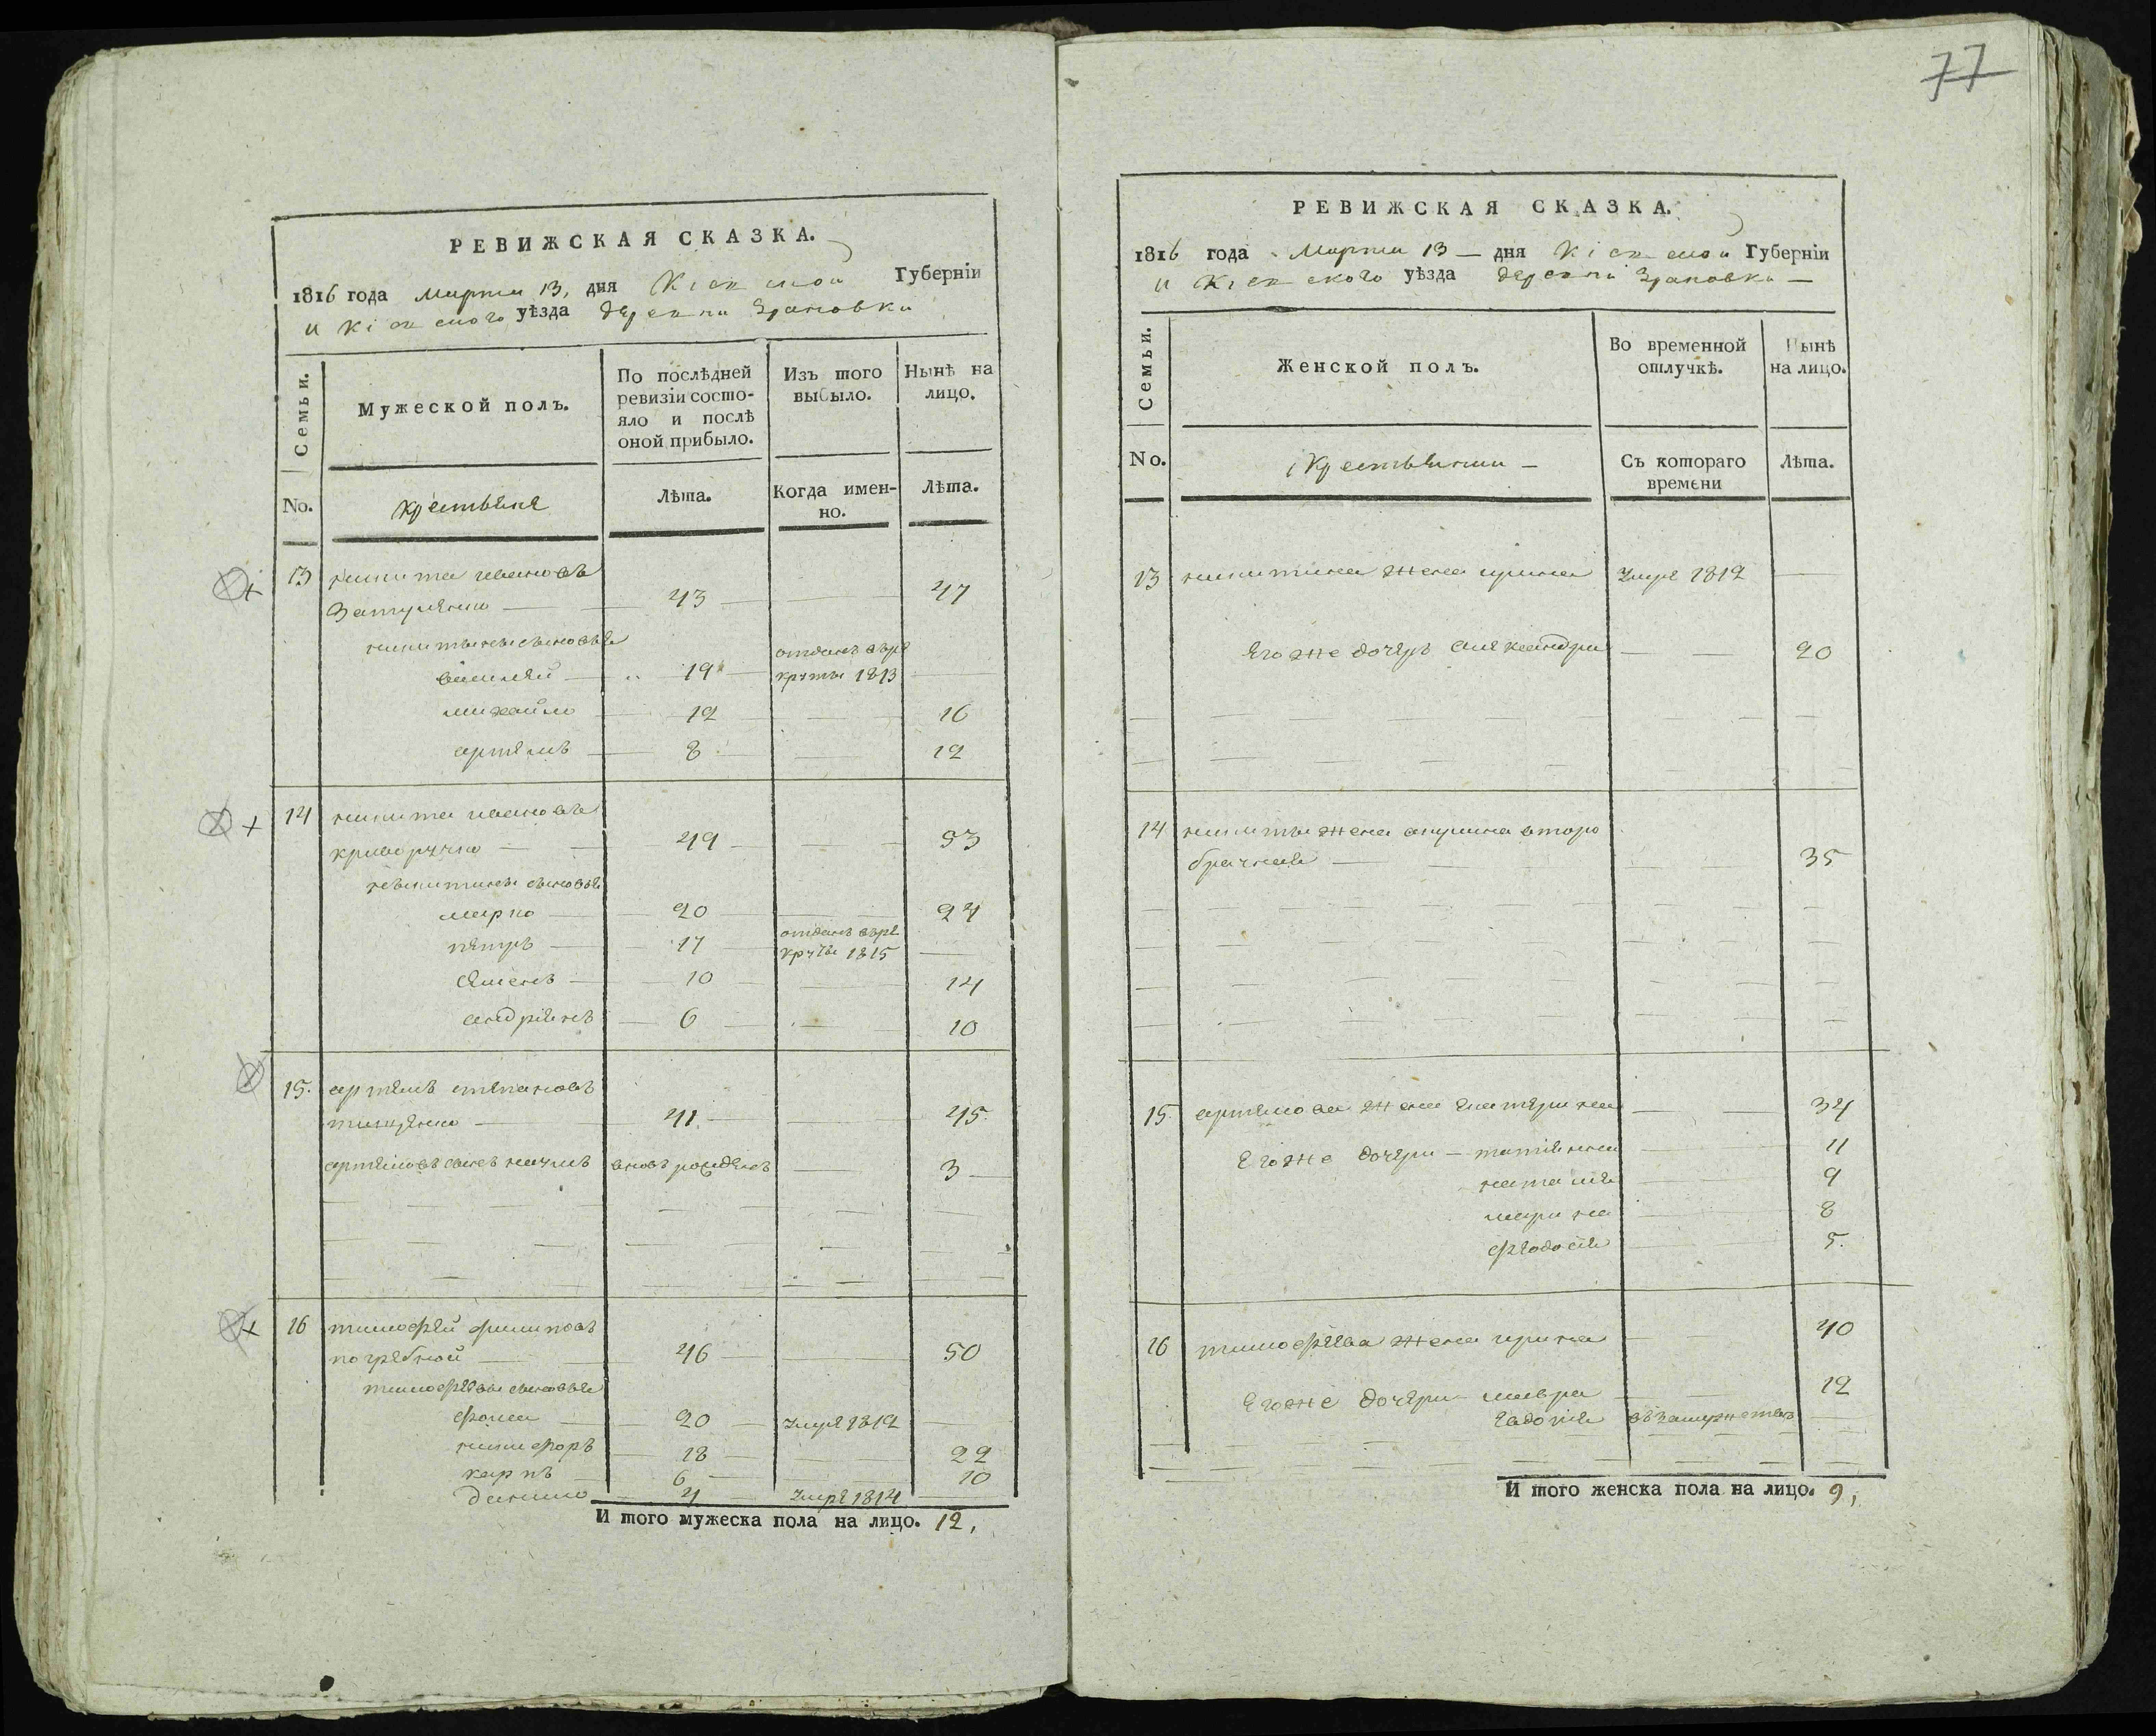 77
РЕВИЖСКАЯ СКАЗКА.
1816 года марта 13, дня Кіевской Губерніи
и Кіевского уѣзда деревни
Семьи. Мужеской полъ. По послѣдней ревизіи состояло и послѣ оной прибыло. Изъ того выбыло. Нынѣ на лицо.
No. крестьяне Лѣта. Когда именно. Лѣта.
13 никита ивановъ
43 47
никитины сыновья
василей 19 отданъ в ре
круты 1813
михайло 12 16
артемъ 8 12
14 никита ивановъ
криворучко 49 53
никитины сыновья
марко 20 24
петръ 17 отданъ в ре
круты 1815
семенъ 10 14
андреянъ 6 10
15. артемъ степановъ
тищенко 41. 45.
артемовъ сынъ наумъ вновь рожденъ 3
16 тимофей филиповъ
погребной 46 50
тимофеевы сыновья
фома 20 умре 1812
никифоръ 18 22
карпъ 6 10
данило 4 умре 1814
И того мужеска пола на лицо. 12,
РЕВИЖСКАЯ СКАЗКА.
1816 года марта 13 — дня Кіевской Губерніи
и Кіевского уѣзда деревни
Семьи. Женской полъ. Во временной отлучкѣ. Нынѣ на лицо.
No. Крестьянки — Съ котораго времени Лѣта.
13 никитина жена ирина умре 1812
его же дочерь александра 20
14 никиты жена второ
брачная 35
15 артемова жена екатерина 34
его же дочери — татіяна 11
наталія 9
марина 8
феодосія 5.
16 тимофеева жена ирина 40
его же дочери мавра 12
евдокія въ замужествѣ
И того женска пола на лицо. 9,